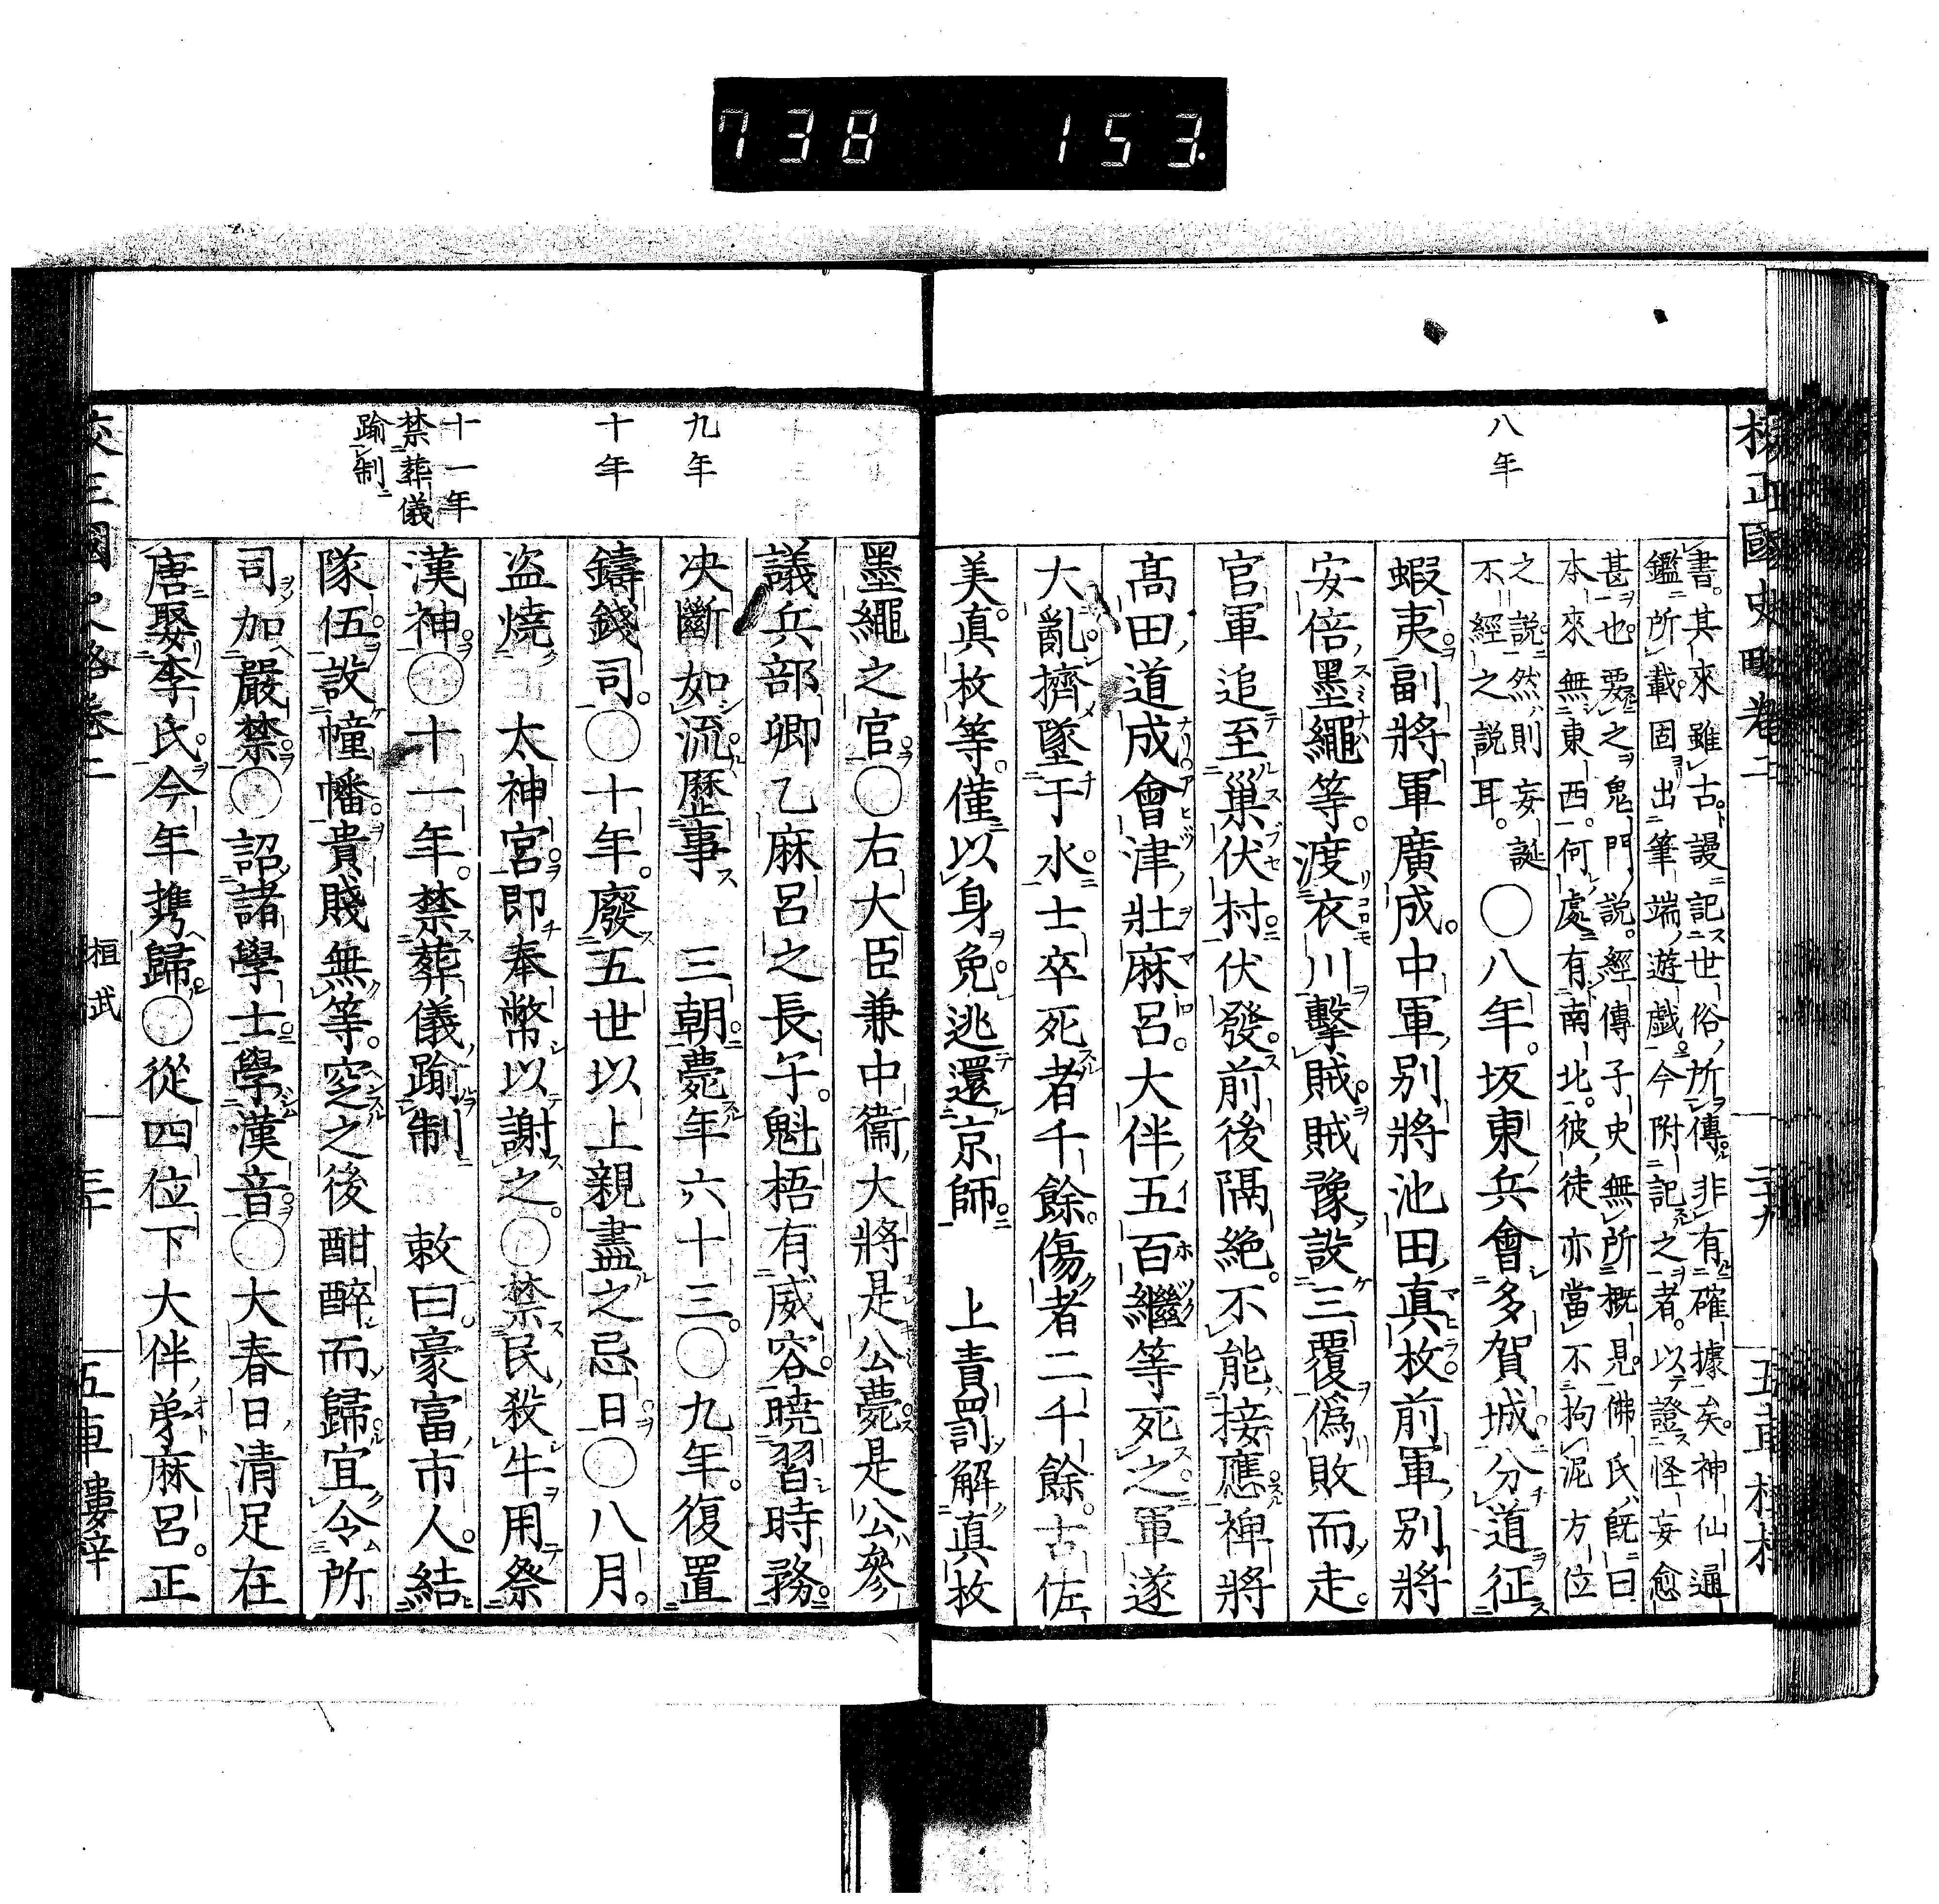 738 153.
校正國史略卷二
二十九
五車樓梓
書。其來雖古。謾記世俗所傳。非有確據矣。神仙通
鑑所載。固出筆端遊戲。今附記之者。以證怪妄愈
甚也。要之鬼門説。經傳子史無所概見。佛氏既曰
本來無東西。何處有南北。彼徒亦當不拘泥方位
之説。然則妄誕
不經之説耳。
〇八年。坂東兵會多賀城。分道征
八年
蝦夷。副將軍廣成。中軍別將池田真枚。前軍別將
安倍墨繩等。渡衣川擊賊。賊豫設三覆。偽敗而走。
官軍追至巢伏村。伏發。前後隔絶。不能接應。裨將
高田道成。會津壯麻呂。大伴五百繼等死之。軍遂
大亂。擠墜于水。士卒死者千餘。傷者二千餘。古佐
美。真枚等。僅以身免。逃還京師。 上責罰解真枚
墨繩之官。〇右大臣兼中衞大將是公薨。是公參
議兵部卿乙麻呂之長子。魁梧有威容。曉習時務。
決斷如流。歷事 三朝。薨年六十三。〇九年。復置
九年
鑄錢司。〇十年。廢五世以上親盡之忌日。〇八月。
十年
盜燒 太神宮。即奉幣以謝之。〇禁民殺牛用祭
漢神。〇十一年。禁葬儀踰制 敕曰。豪富市人。結
十一年
禁葬儀
踰制
隊伍。設幢幡。貴賤無等。窆之後酣醉而歸。宜令所
司加嚴禁。〇詔諸學士。學漢音。〇大春日清足在
唐娶李氏。今年攜歸。〇從四位下大伴弟麻呂。正
桓武
三十
五車樓梓